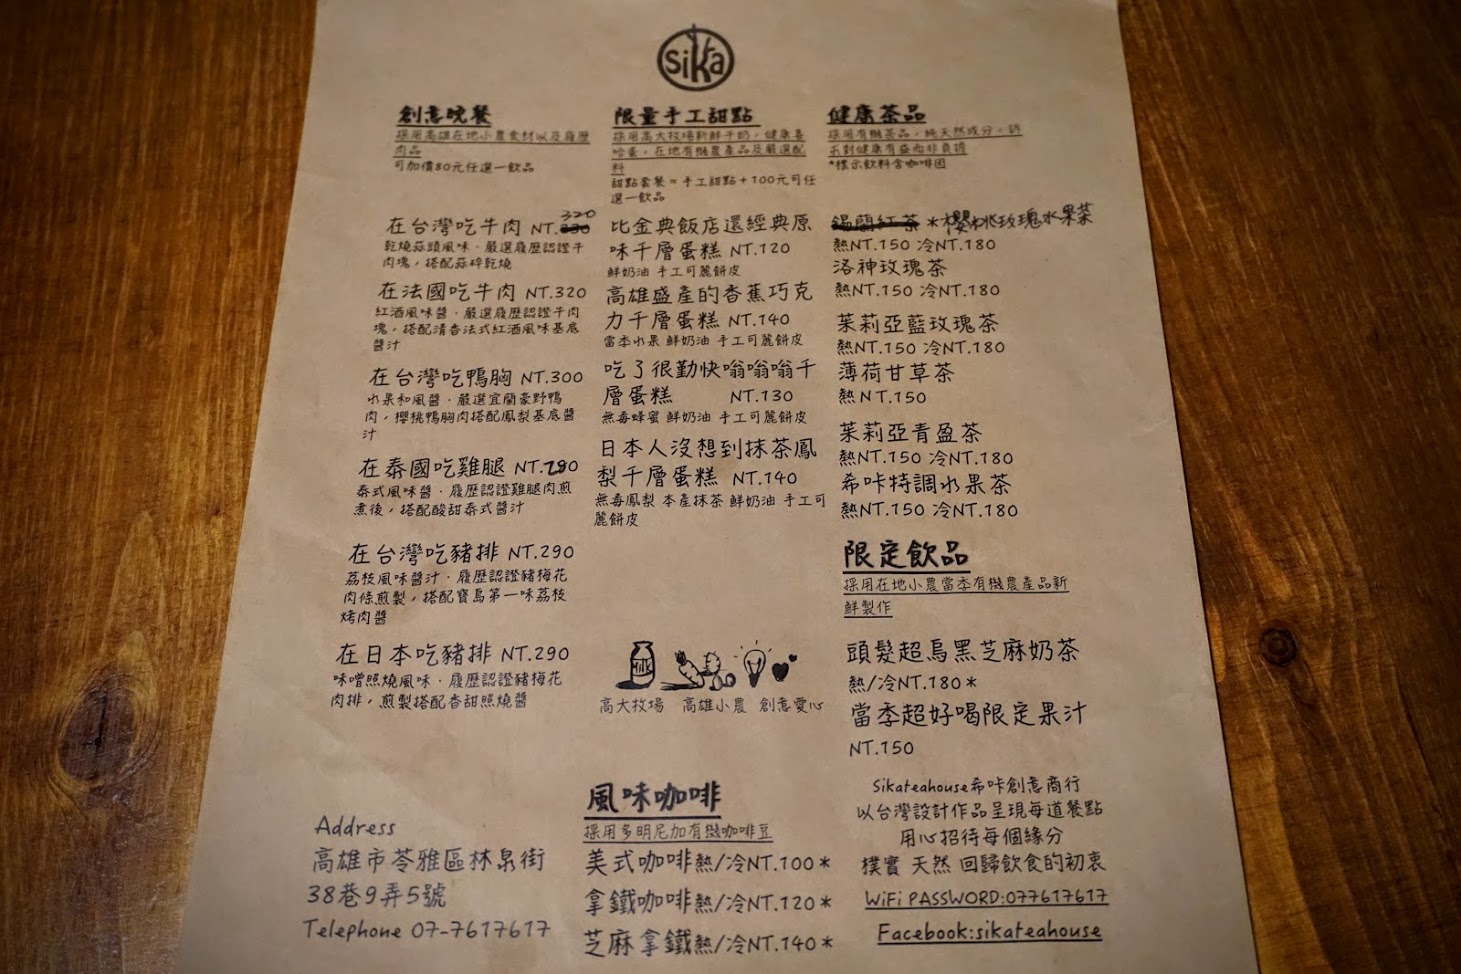 sika
創意晚餐
採用高雄在地小農食材以及履歷
肉品
可加價80元任選一飲品
320
在台灣吃牛肉 NT.330
乾燒蒜頭風味．嚴選履歷認證牛
肉塊，搭配蒜碎乾燒
在法國吃牛肉 NT.320
紅酒風味醬．嚴選履歷認證牛肉
塊，搭配清香法式紅酒風味基底
醬汁
在台灣吃鴨胸 NT.300
水果和風醬．嚴選宜蘭豪野鴨
肉，櫻桃鴨胸肉搭配鳳梨基底醬
汁
在泰國吃雞腿 NT.290
泰式風味醬．履歷認證雞腿肉煎
煮後，搭配酸甜泰式醬汁
在台灣吃豬排 NT.290
荔枝風味醬汁．履歷認證豬梅花
肉條煎製，搭配寶島第一味荔枝
烤肉醬
在日本吃豬排 NT.290
味噌照燒風味．履歷認證豬梅花
肉排，煎製搭配香甜照燒醬
Address
高雄市苓雅區林泉街
38巷9弄5號
Telephone 07-7617617
限量手工甜點
採用高大牧場新鮮牛奶，健康喜
哈蛋，在地有機農產品及嚴選配
料
甜點套餐=手工甜點+100元可任
選一飲品
比金典飯店還經典原
味千層蛋糕 NT.120
鮮奶油 手工可麗餅皮
高雄盛產的香蕉巧克
力千層蛋糕 NT.140
當季水果 鮮奶油 手工可麗餅皮
吃了很勤快嗡嗡嗡千
層蛋糕 NT.130
無毒蜂蜜 鮮奶油 手工可麗餅皮
日本人沒想到抹茶鳳
梨千層蛋糕 NT.140
無毒鳳梨 本產抹茶 鮮奶油 手工可
麗餅皮
Milk
高大牧場 高雄小農 創意愛心
風味咖啡
採用多明尼加有機咖啡豆
美式咖啡熱/冷NT.100*
拿鐵咖啡熱/冷NT.120*
芝麻拿鐵熱/冷NT.140*
健康茶品
採用有機茶品，純天然成分，訴
求對健康有益而非負擔
*標示飲料含咖啡因
錫蘭紅茶 *櫻桃玫瑰水果茶
熱NT.150 冷NT.180
洛神玫瑰茶
熱NT.150 冷NT.180
茱莉亞藍玫瑰茶
熱NT.150 冷NT.180
薄荷甘草茶
熱NT.150
茱莉亞青盈茶
熱NT.150 冷NT.180
希咔特調水果茶
熱NT.150 冷NT.180
限定飲品
採用在地小農當季有機農產品新
鮮製作
頭髮超烏黑芝麻奶茶
熱/冷NT.180*
當季超好喝限定果汁
NT.150
Sikateahouse希咔創意商行
以台灣設計作品呈現每道餐點
用心招待每個緣分
樸實 天然 回歸飲食的初衷
WiFi PASSWORD:077617617
Facebook:sikateahouse